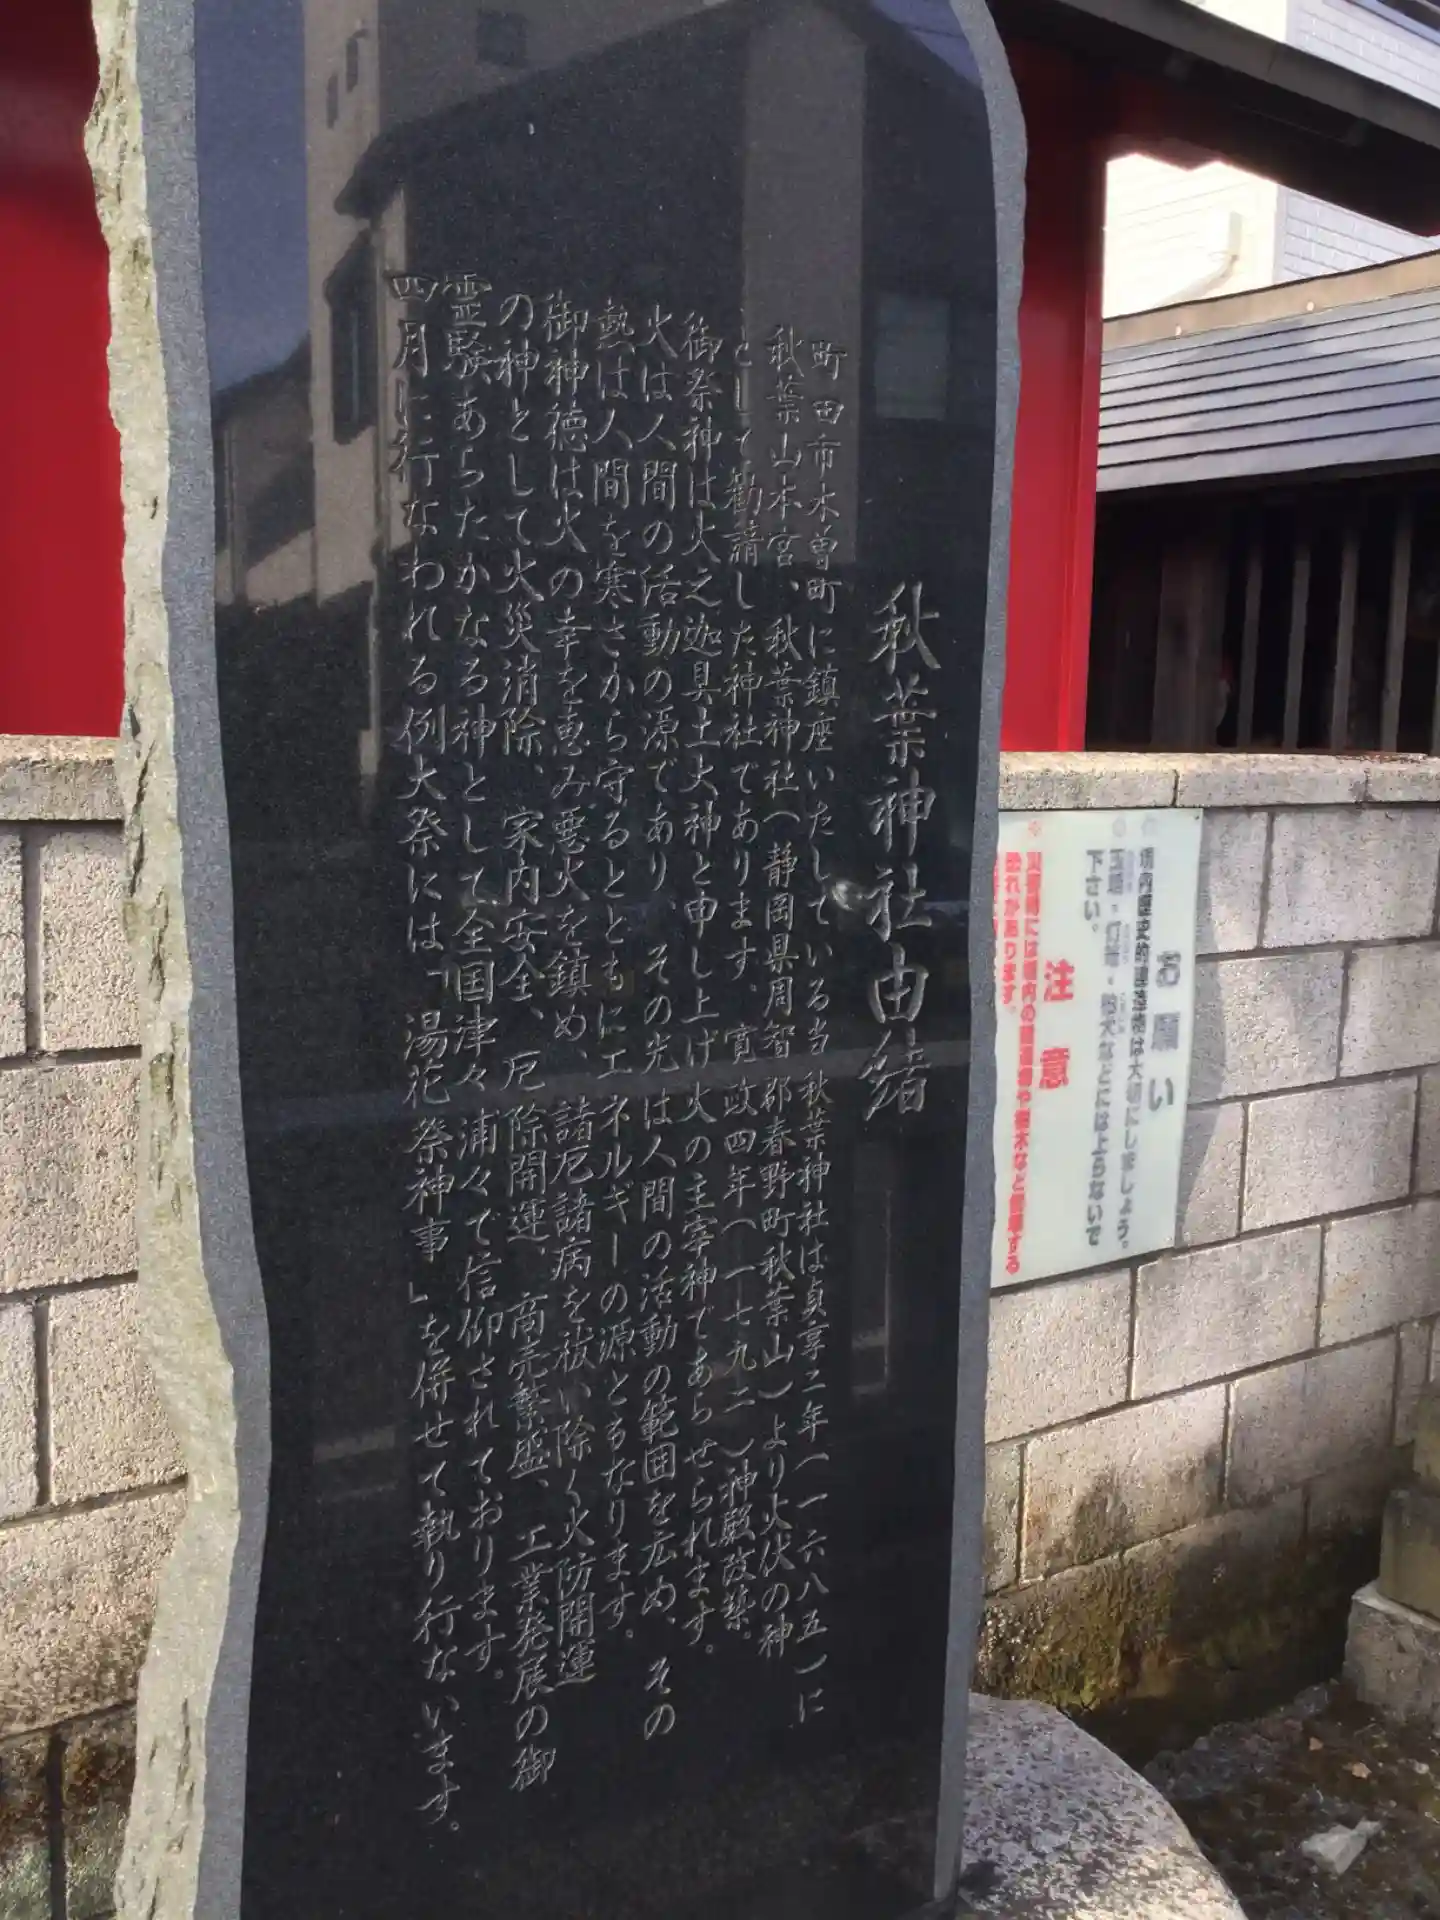 秋葉神社由緒
町田市木曽町に鎮座いたしている当秋葉神社は貞享二年(一六八五)に
秋葉山本宮、秋葉神社(静岡県周智郡春野町秋葉山)より火伏の神
として勧請した神社であります。寛政四年(一七九二)神殿改築。
御祭神は火之迦具土大神と申し上げ火の主宰神であらせられます。
火は人間の活動の源であり、その光は人間の活動の範囲を広め、その
熱は人間を寒さから守るとともにエネルギーの源となります。
御神徳は火の幸を恵み悪火を鎮め、諸厄諸病を祓い除く火防開運
の神として火災消除、家内安全、厄除開運、商売繁盛、工業発展の御
霊験あらたかなる神として全国津々浦々で信仰されております。
四月に行なわれる例大祭には「湯花祭神事」を併せて執り行ないます。
お願い
境内歴史的建造物は大切にしましょう。
玉垣・灯篭・狛犬などには上らないで
下さい。
注意
災害時には境内の
恐れがあります。